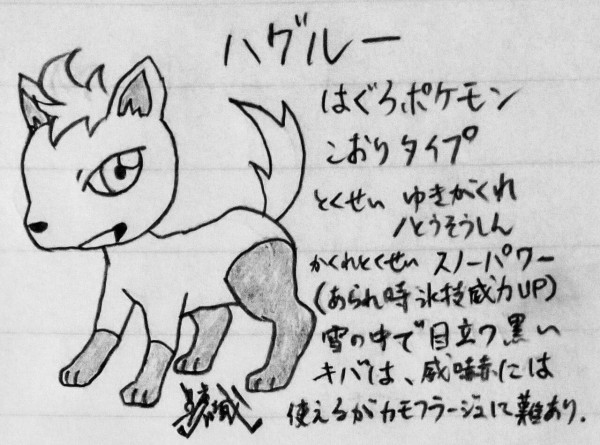 ハグルー
はぐろポケモン
こおりタイプ
とくせい ゆきがくれ
/とうそうしん
かくれとくせい スノーパワー
(あられ時氷技威力UP)
雪の中で目立つ黒い
キバは、威嚇には
使えるがカモフラージュに難あり.